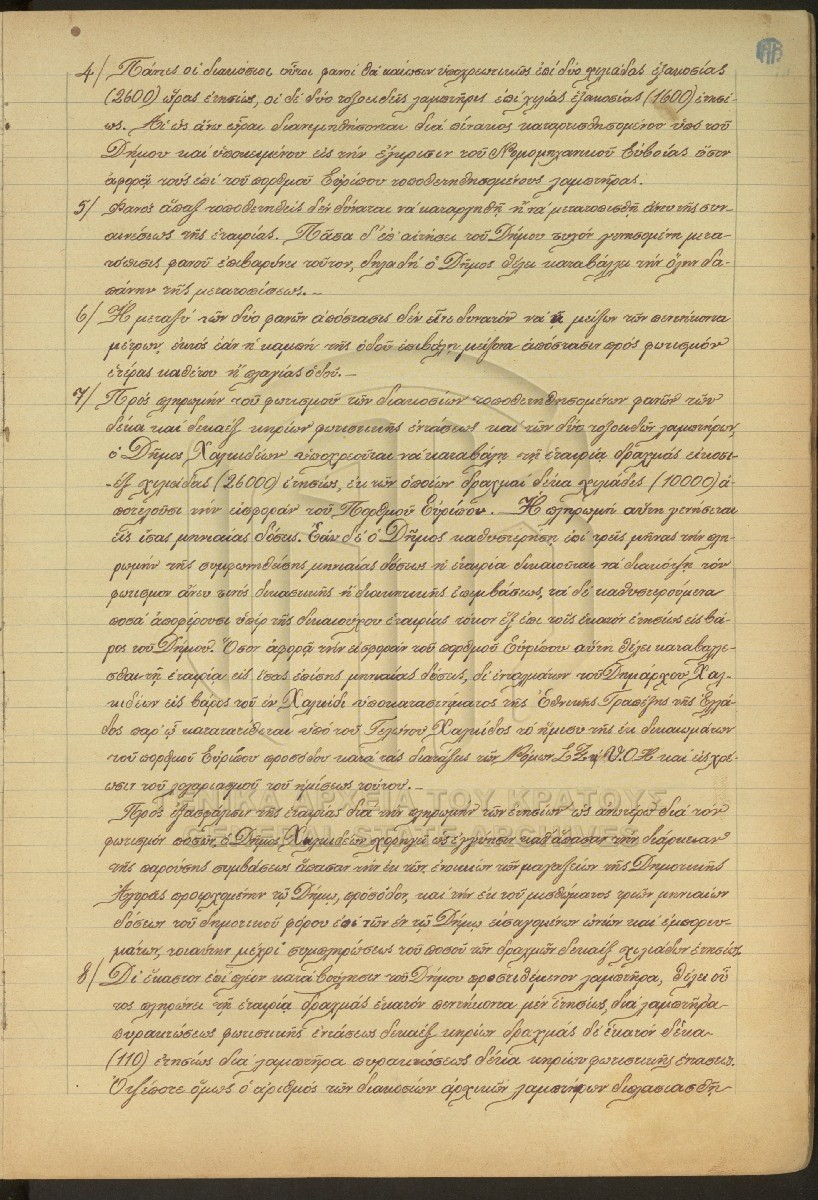 4/ Πάντες οἱ διακόσιοι οὗτοι φανοί θά καίωσιν ὑποχρεωτικῶς ἐπί δύο χιλιάδας ἑξακοσίας
(2600) ὥρας ἐτησίως, οἱ δέ δύο τοξοειδεῖς λαμπτῆρες ἐπί χιλίας ἑξακοσίας (1600) ἐτησί-
ως. Αἱ ὡς ἄνω ὧραι διανεμηθήσονται διά πίνακος καταρτισθησομένου ὑπό τοῦ
Δήμου καί ὑποκειμένου εἰς τήν ἔγκρισιν τοῦ Νομομηχανικοῦ Εὐβοίας ὅσον
ἀφορᾷ τούς ἐπί τοῦ πορθμοῦ Εὐρίπου τοποθετηθησομένους λαμπτῆρας.
5/ Φανός ἅπαξ τοποθετηθείς δέν δύναται νά καταργηθῇ ἤ νά μετατοπισθῇ ἄνευ τῆς συν-
αινέσεως τῆς ἑταιρίας. Πᾶσα δ' ἐπ' αἰτήσει τοῦ Δήμου τυχόν γενησομένη μετα-
τόπισις φανοῦ ἐπιβαρύνει τοῦτον, δηλαδή ὁ Δῆμος θέλει καταβάλλει τήν ὅλην δα-
πάνην τῆς μετατοπίσεως.—
6/ Ἡ μεταξύ τῶν δύο φανῶν ἀπόστασις δέν εἶνε δυνατόν νά ᾖ μείζων τῶν πεντήκοντα
μέτρων, ἐκτός ἐάν ἡ καμπή τῆς ὁδοῦ ἐπιβάλῃ μείζονα ἀπόστασιν πρός φωτισμόν
ἑτέρας καθέτου ἤ πλαγίας ὁδοῦ.—
7/ Πρός πληρωμήν τοῦ φωτισμοῦ τῶν διακοσίων τοποθετηθησομένων φανῶν τῶν
δέκα καί δεκαέξ κηρίων φωτιστικῆς ἐντάσεως καί τῶν δύο τοξοειδῶν λαμπτήρων,
ὁ Δῆμος Χαλκιδέων ὑποχρεοῦται νά καταβάλῃ τῇ ἑταιρίᾳ δραχμάς εἰκοσι-
έξ χιλιάδας (26000) ἐτησίως, ἐκ τῶν ὁποίων δραχμαί δέκα χιλιάδες (10000) ἀ-
ποτελοῦσι τήν εἰσφοράν τοῦ Πορθμοῦ Εὐρίπου. Ἡ πληρωμή αὕτη γενήσεται
εἰς ἴσας μηνιαίας δόσεις. Ἐάν δέ ὁ Δῆμος καθυστερήσῃ ἐπί τρεῖς μῆνας τήν πλη-
ρωμήν τῆς συμφωνηθείσης μηνιαίας δόσεως ἡ ἑταιρία δικαιοῦται νά διακόψῃ τόν
φωτισμόν ἄνευ τινός δικαστικῆς ἤ διοικητικῆς ἐπεμβάσεως, τά δέ καθυστερούμενα
ποσά ἀποφέρουσι ὑπέρ τῆς δικαιούχου ἑταιρίας τόκον ἕξ ἐπί τοῖς ἑκατόν ἐτησίως εἰς βά-
ρος τοῦ Δήμου. Ὅσον ἀφορᾷ τήν εἰσφοράν τοῦ πορθμοῦ Εὐρίπου αὕτη θέλει καταβάλλε-
σθαι τῇ ἑταιρίᾳ εἰς ἴσας ἐπίσης μηνιαίας δόσεις, δι' ἐνταλμάτων τοῦ Δημάρχου Χαλ-
κιδέων εἰς βάρος τοῦ ἐν Χαλκίδι ὑποκαταστήματος τῆς Ἐθνικῆς Τραπέζης τῆς Ἑλλά-
δος παρ' ᾧ κατατίθεται ὑπό τοῦ Τελώνου Χαλκίδος τό ἥμισυ τῆς ἐκ δικαιωμάτων
τοῦ πορθμοῦ Εὐρίπου προσόδου κατά τάς διατάξεις τῶν Νόμων καί εἰς χρέ-
ωσιν τοῦ λογαριασμοῦ τοῦ ἡμίσεως τούτου.—
Πρός ἐξασφάλισιν τῆς ἑταιρίας διά τήν πληρωμήν τῶν ἐτησίων ὡς ἀνωτέρω διά τόν
φωτισμόν ποσῶν, ὁ Δῆμος Χαλκιδέων χορηγεῖ ὡς ἐγγύησιν καθ' ἅπασαν τήν διάρκειαν
τῆς παρούσης συμβάσεως ἅπασαν τήν ἐκ τῶν ἐνοικίων τῶν μαγαζείων τῆς Δημοτικῆς
Ἀγορᾶς προερχομένην τῷ Δήμῳ, πρόσοδον, καί τήν ἐκ τοῦ μισθώματος τριῶν μηνιαίων
δόσεων τοῦ δημοτικοῦ φόρου ἐπί τῶν ἐν τῷ Δήμῳ εἰσαγομένων ὠνίων καί ἐμπορευ-
μάτων, τοιαύτην μέχρι συμπληρώσεως τοῦ ποσοῦ τῶν δραχμῶν δεκαέξ χιλιάδων ἐτησίως.
8/ Δι' ἕκαστον ἐπί πλέον κατά βούλησιν τοῦ Δήμου προστιθέμενον λαμπτῆρα, θέλει οὗ-
τος πληρώνει τῇ ἑταιρίᾳ δραχμάς ἑκατόν πεντήκοντα μέν ἐτησίως, διά λαμπτῆρα
πυρακτώσεως φωτιστικῆς ἐντάσεως δεκαέξ κηρίων δραχμάς δέ ἑκατόν δέκα
(110) ἐτησίως διά λαμπτῆρα πυρακτώσεως δέκα κηρίων φωτιστικῆς ἐντάσεως.
Ὁτεδήποτε ὅμως ὁ ἀριθμός τῶν διακοσίων ἀρχικῶν λαμπτήρων διπλασιασθῇ
ΓΕΝΙΚΑ ΑΡΧΕΙΑ ΤΟΥ ΚΡΑΤΟΥΣ
GENERAL STATE ARCHIVES